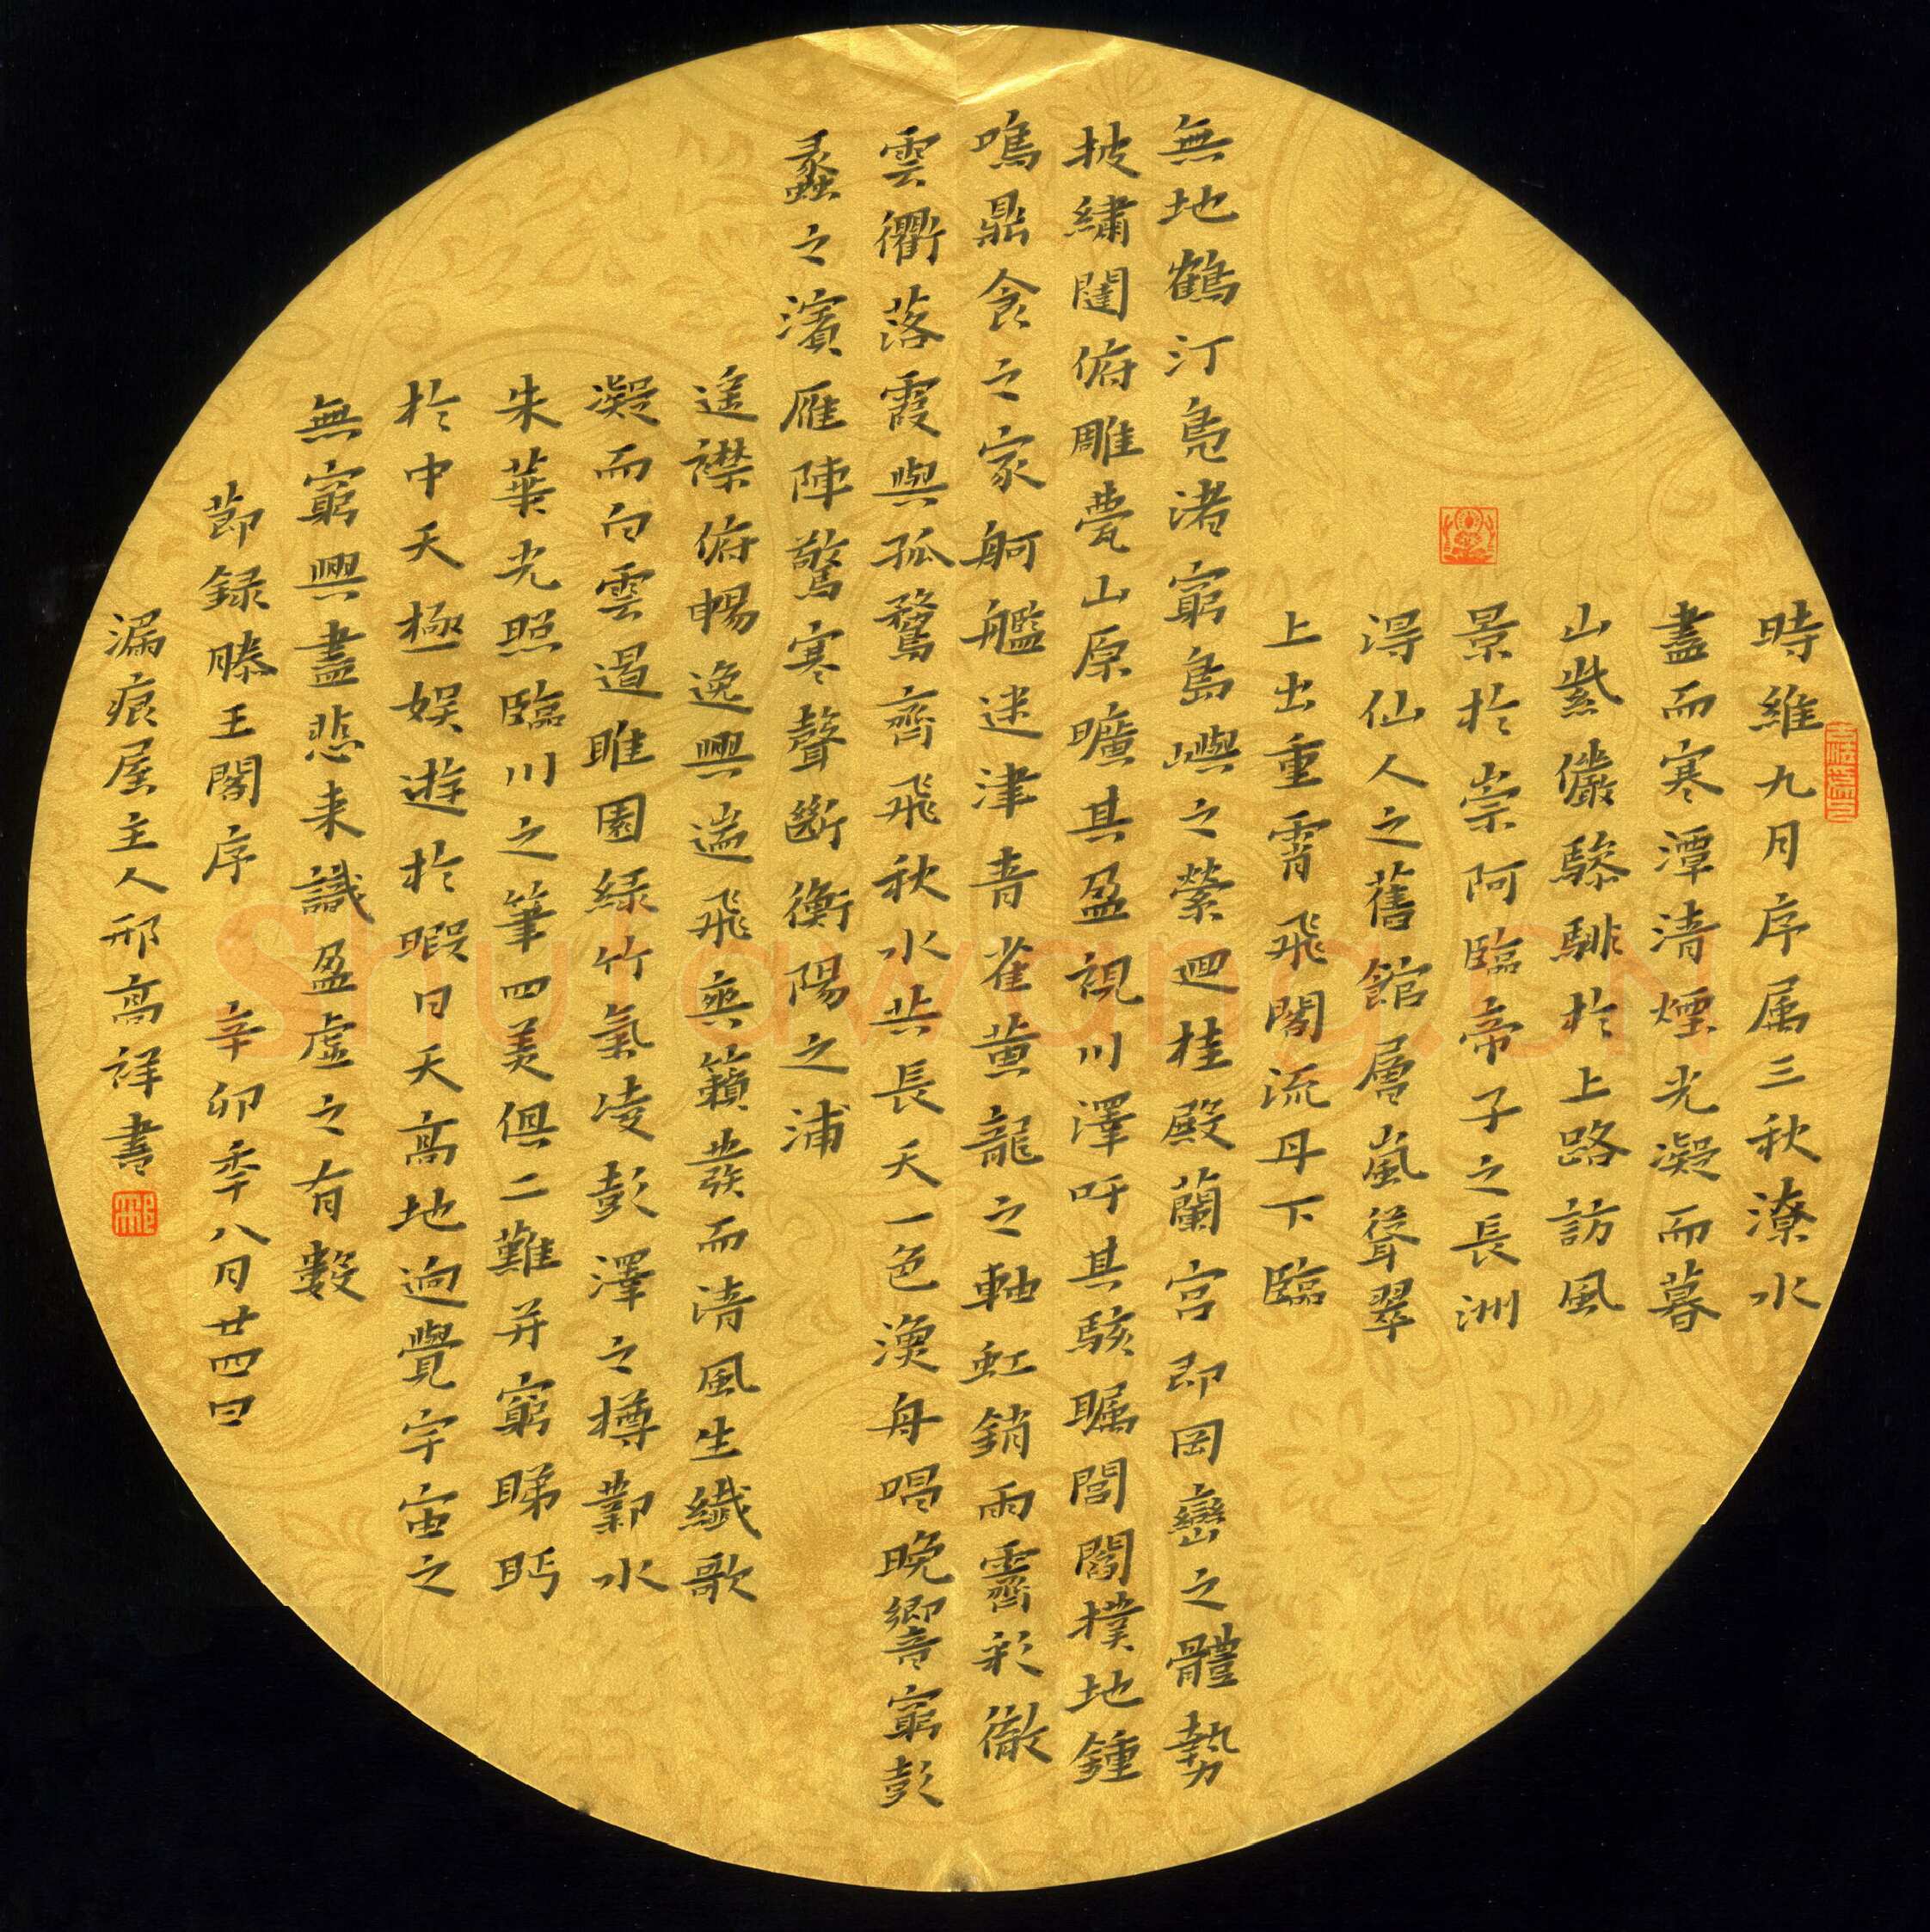 時維九月序属三秋潦水
盡而寒潭清煙光凝而暮
山紫儼驂騑於上路訪風
景於崇阿臨帝子之長洲
淂仙人之舊館層嵐聳翠
上出重霄飛閣流丹下臨
無地鶴汀鳧渚窮島嶼之縈迴桂殿蘭宮即岡巒之體勢
披繡闥俯雕甍山原曠其盈視川澤吁其駭矚閭閻撲地鍾
鳴鼎食之家舸艦迷津青雀黄龍之軸虹銷雨霽彩徹
雲衢落霞與孤鶩齊飛秋水共長天一色漁舟唱晚響窮彭
蠡之濱雁陣驚寒聲斷衡陽之浦
遥襟俯暢逸興遄飛爽籟發而清風生纖歌
凝而白雲遏睢園緑竹氣凌彭澤之樽鄴水
朱華光照臨川之筆四美俱二難并窮睇眄
於中天極娱遊於暇日天高地迥覺宇宙之
無窮興盡悲来識盈虚之有數
節録滕王閣序 辛卯季八月廿四日
漏痕屋主人邢高祥書
Shufawang.CN